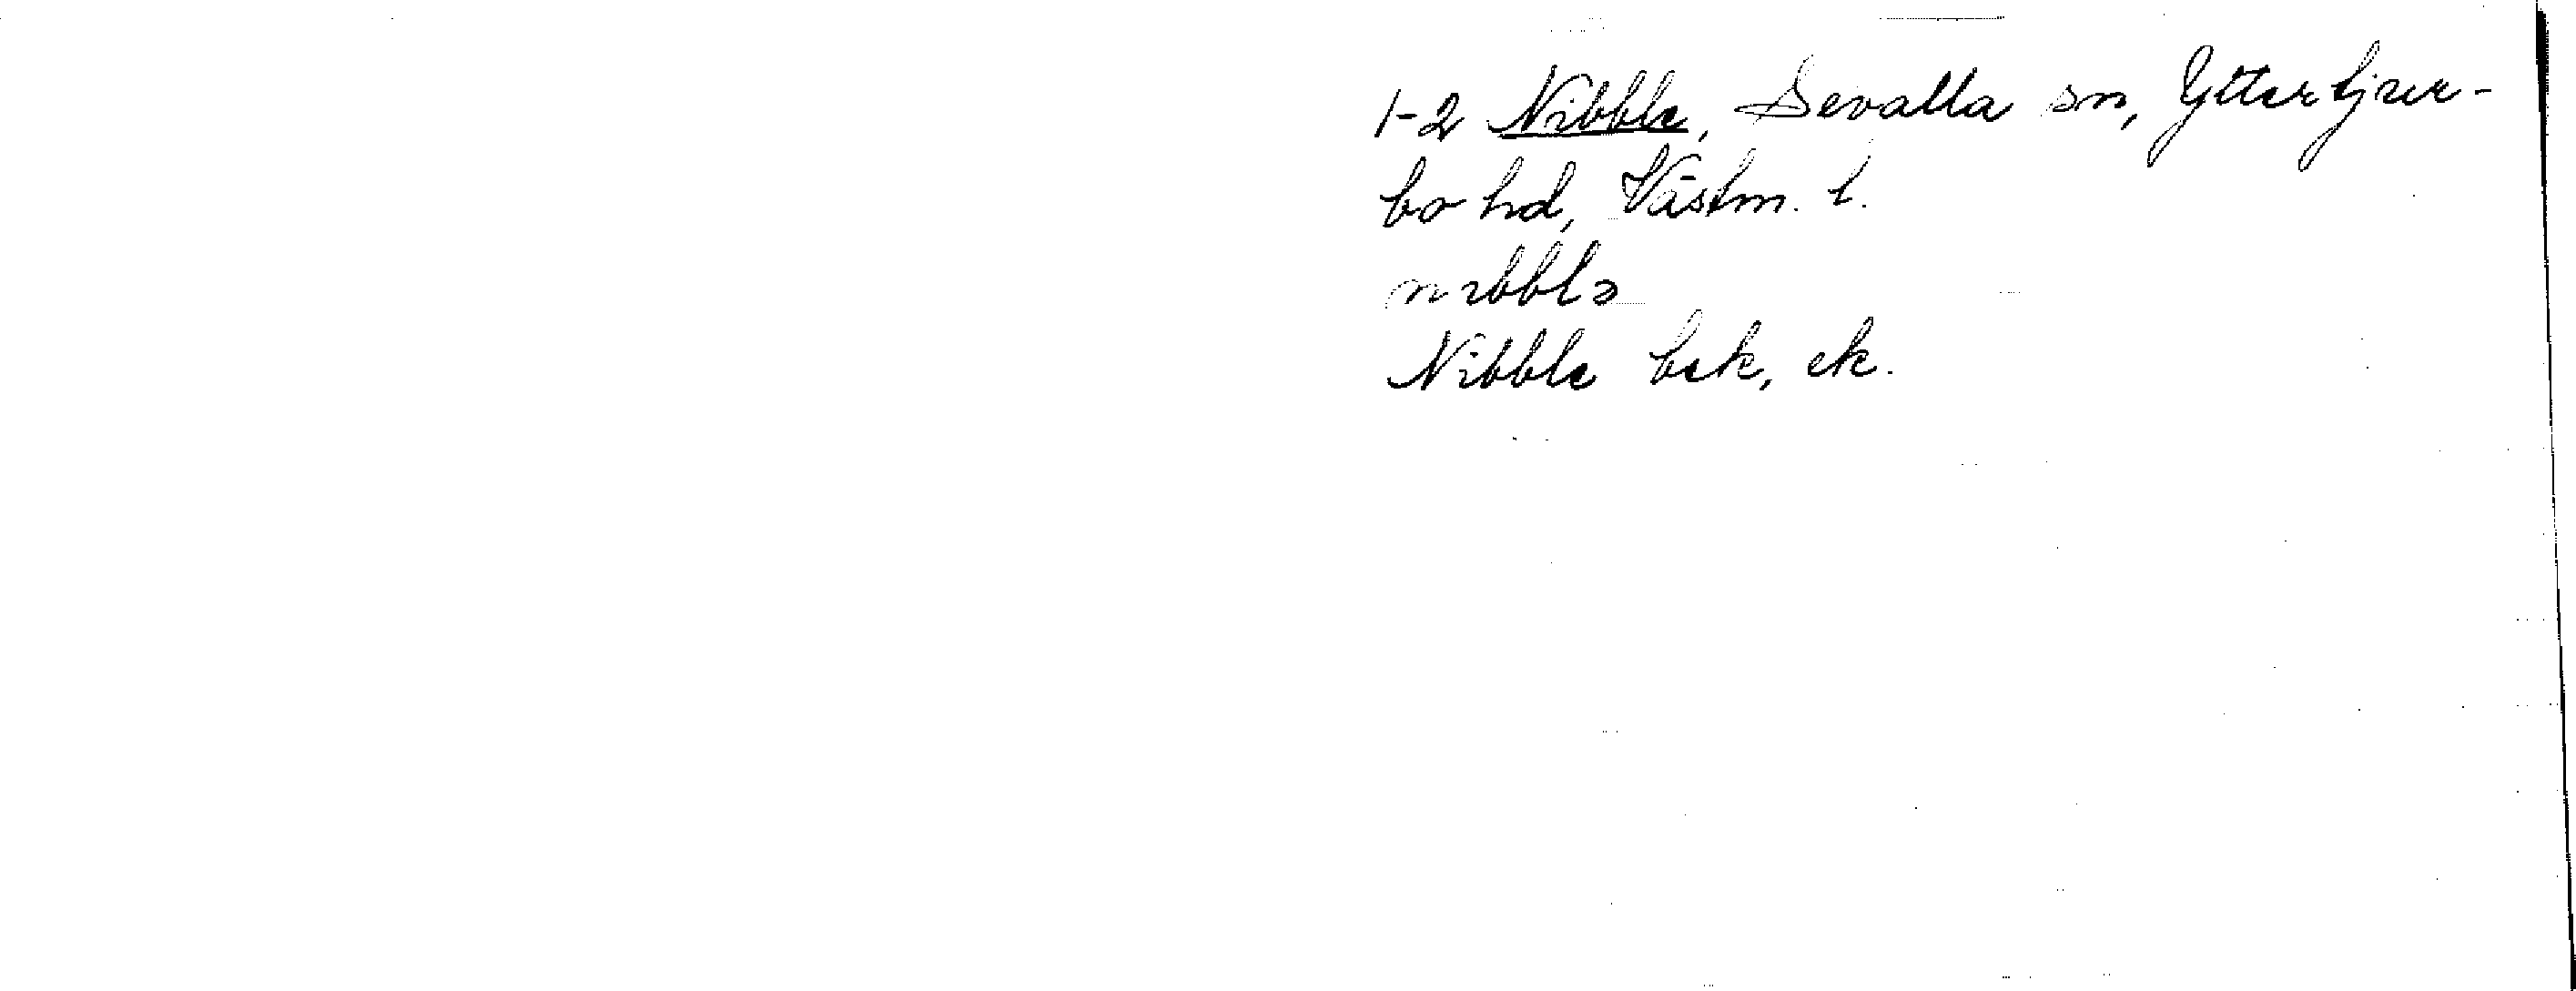 1-2 Nibble, Sevalla sn, Yttertjur-
bo hd, Västm. l.
nıbblə
Nibble bek, ek.